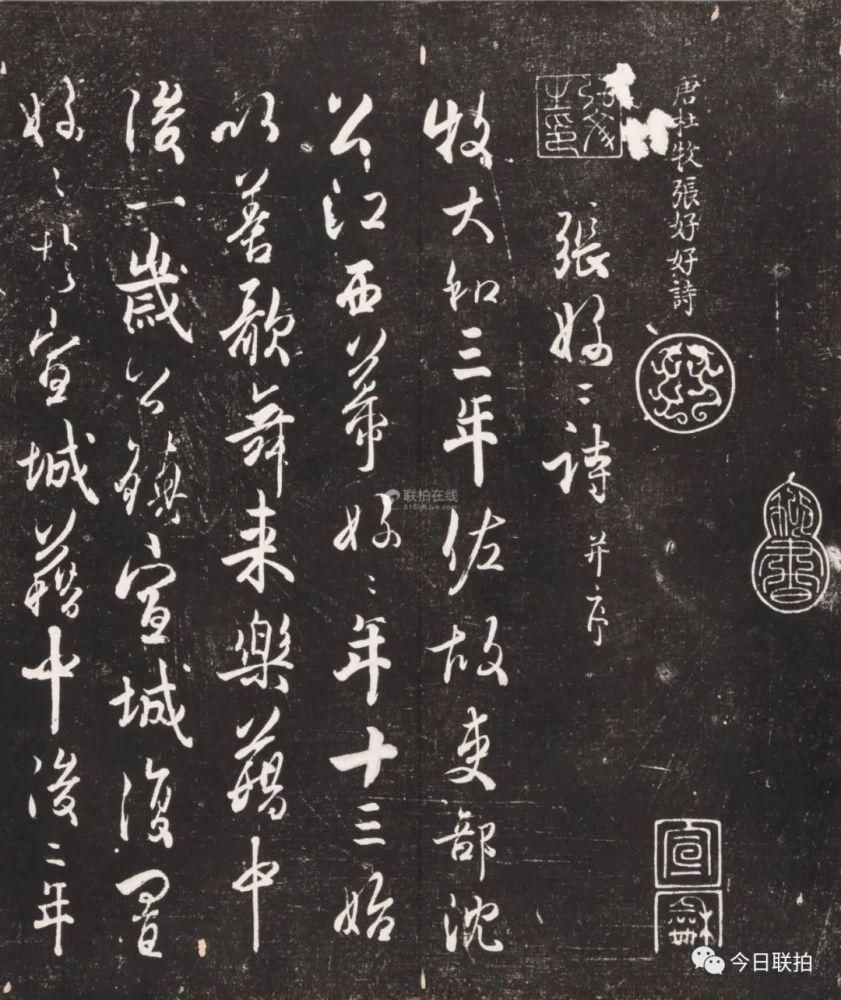 唐杜牧張好好詩
張好〻詩并序
牧大和三年佐故吏部沈
公江西幕好〻年十三始
以善歌舞来樂籍中
後一歲公鎮宣城復置
好〻於宣城籍中後二年
宣龢
联拍在线
今日联拍